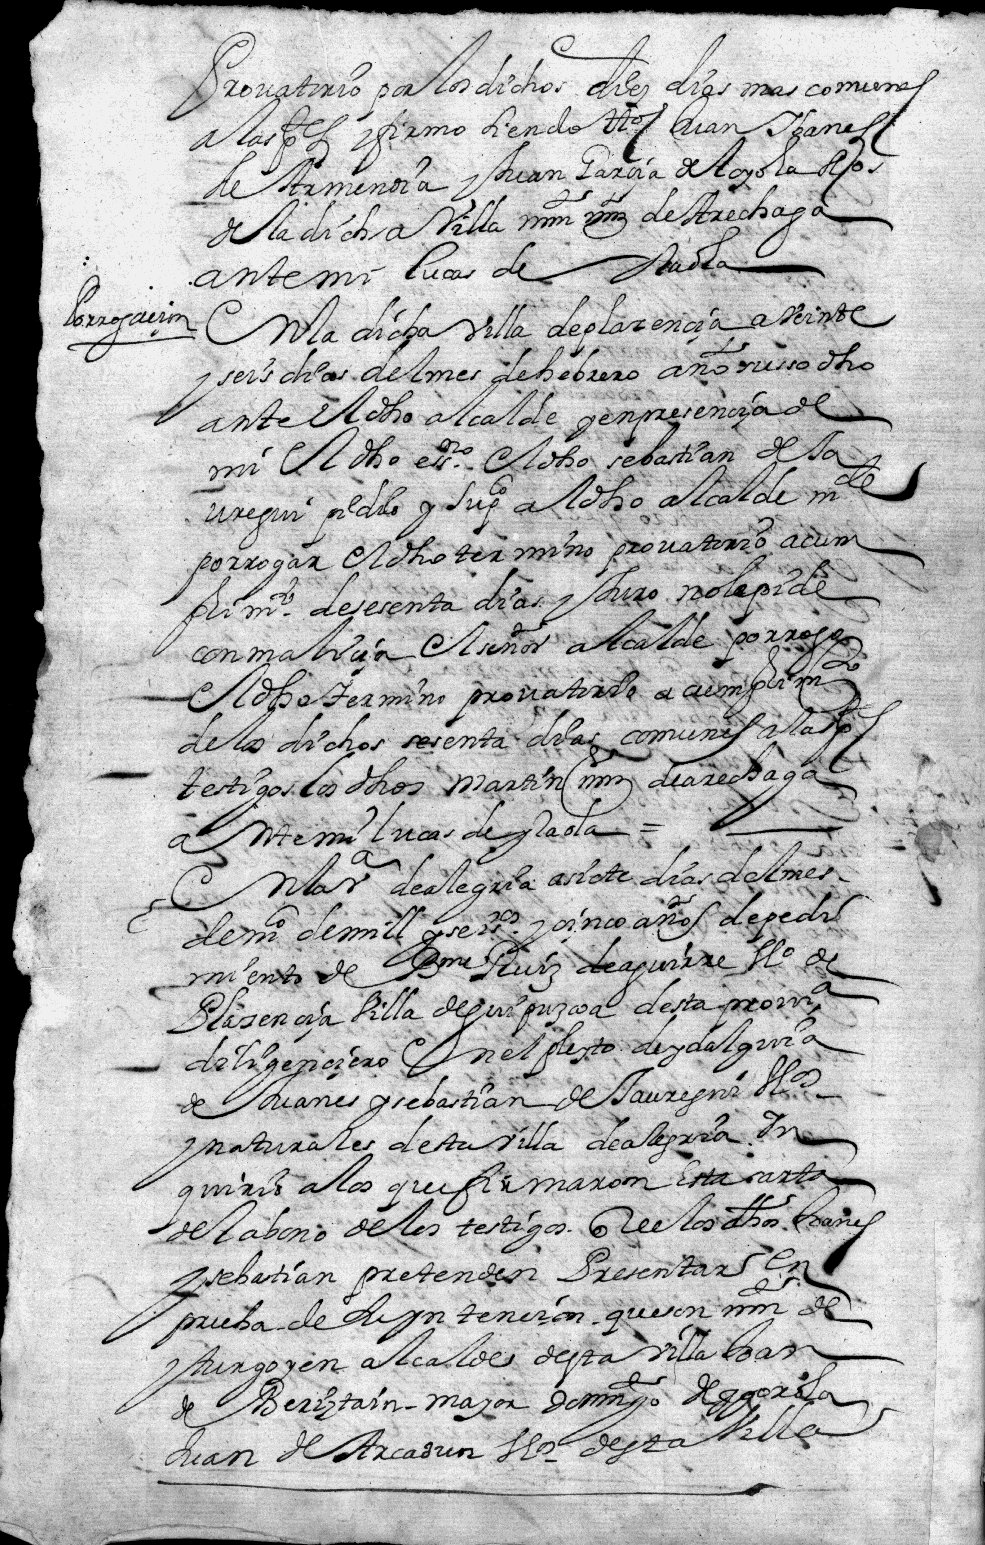 Provatorio por los dichos diez dias mas comunes
a las ptes y firmo siendo tºs Juan Ybanes
de Armendia y Juan Garcia de Loyola vºs
de la dicha Villa mrn mrz de Arechaga
ante mi Lucas de
Porrogacion
En la dicha villa de plazencia a Veinte
y seis dias del mes de hebrero año susso dho
ante El dho alcalde y en presencia de
mi El dho essno El dho sebastian de Ja
uregui pidio y supco a l dho alcalde mde
porrogar El dho termino provatorio a cum
plimto de sesenta dias y Juro no lo pide
con maliçia El señor alcalde porrogo
El dho termino provatorio a cumplimto
de los dichos sesenta dias comunes a las ptes
testigos los dhos martin mrz de arechaga
ante mi lucas de =
En la va de alegria a siete dias del mes
de mço de mill y seisºs y cinco años de pedi
miento de Bme Ruiz de aguirre vº de
Plazencia Villa de guipuzcoa desta provia
diligenciero En el pleyto de ydalguia
de Juanes y sebastian de Jauregui vºs
y naturales desta villa de alegria In
quirio a los que firmaron Esta carta
del abono de los testigos que los dhos Joanes
y sebastian pretenden Presentar En
prueba de su yntencion que son mrn de
yturgoyen alcaldes desta villa Joan
de Beriztain mayor domingo de
Juan de Arcadun vºs desta Villa